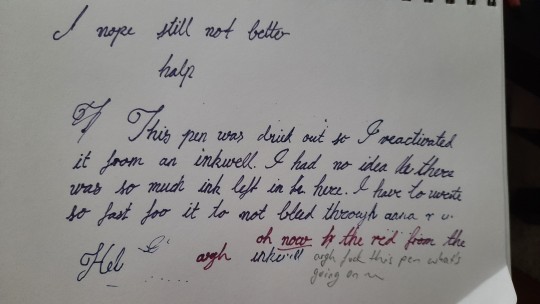 I nope still not better
halp
This pen was dried out so I reactivated
it from an inkwell. I had no idea there
was so much ink left in here. I have to write
so fast for it to not bleed through
oh now the red from the
Hel argh inkwell argh fuck this pen what's
going on